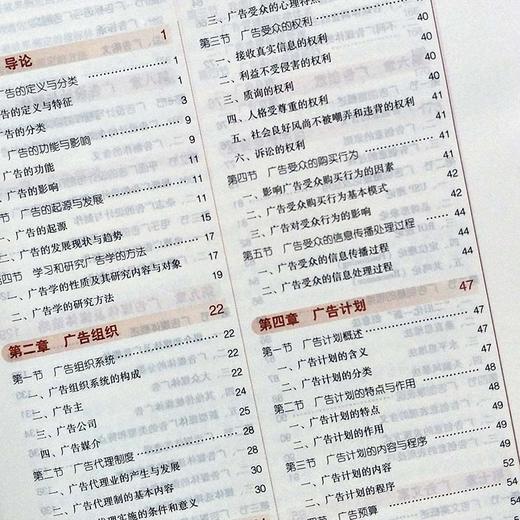 导论 1
告的定义与分类 1
告的定义与特征 1
告的分类 3
广告的功能与影响 9
广告的功能 9
广告的影响 11
节 广告的起源与发展 11
、广告的起源 11
二、广告的发展现状与趋势 15
第四节 学习和研究广告学的方法 17
一、广告学的性质及其研究内容与对象 17
二、广告学的研究方法 19
第二章 广告组织 22
第一节 广告组织系统 22
一、广告组织系统的构成 22
二、广告主 22
三、广告公司 24
四、广告媒介 25
第二节 广告代理制度 28
一、广告代理业的产生与发展 28
二、广告代理制的基本内容 30
代理实施的条件和意义 30
三、广告受众的心理特点
第三节 广告受众的权利 40
一、接收真实信息的权利 40
二、利益不受侵害的权利 40
三、质询的权利 40
四、人格受尊重的权利 41
五、社会良好风尚不被嘲弄和违背的权利 41
六、诉讼的权利 41
第四节 广告受众的购买行为 41
一、影响广告受众购买行为的因素 42
二、广告受众购买行为基本模式 42
三、广告对受众行为的影响 44
第五节 广告受众的信息传播处理过程 44
一、广告受众的信息传播过程 44
二、广告受众的信息处理过程 44
第四章 广告计划 47
第一节 广告计划概述 47
一、广告计划的含义 47
二、广告计划的分类 48
第二节 广告计划的特点与作用 48
一、广告计划的特点 48
二、广告计划的作用 50
第三节 广告计划的内容与程序 52
一、广告计划的内容 52
二、广告计划的程序 54
广告预算 54